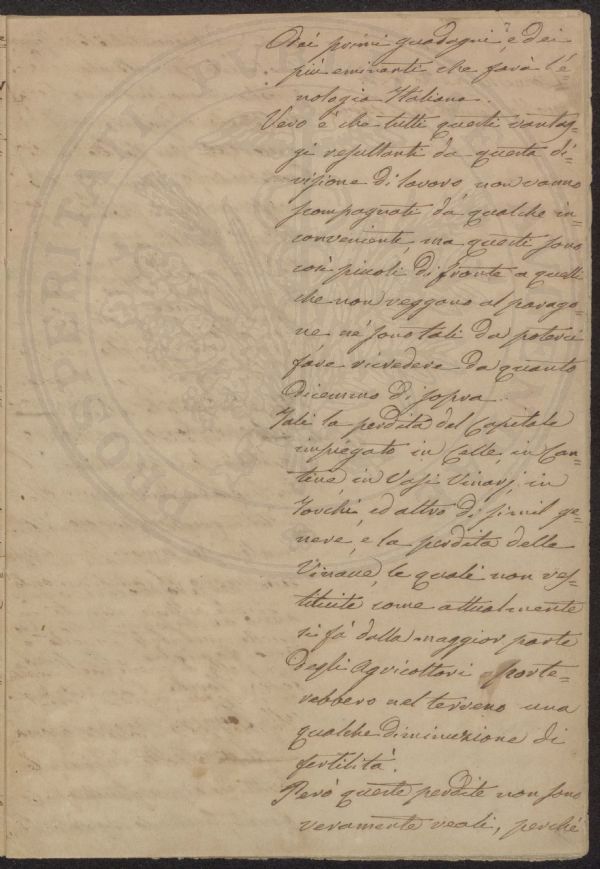 dei primi guadagni, e dei
più eminenti che farà l'e-
nologia Italiana.
Vero è che tutti questi vantag-
gi resultanti da questa di-
visione di lavoro, non vanno
scompagnati da qualche in-
conveniente, ma questi sono
così piccoli di fronte a quelli
che non reggono al parago-
ne nè sono tali da poterci
fare ricredere da quanto
dicemmo di sopra.
Tali la perdita del Capitale
impiegato in Celle, in Can-
tine in Vasi Vinarj, in
Torchi, ed altro di simil ge-
nere, e la perdita delle
Vinacce, le quali non res-
tituite come attualmente
si fà dalla maggior parte
degli Agricoltori porte-
rebbero nel terreno una
qualche diminuzione di
fertilità.
Però queste perdite non sono
veramente reali, perchè
PROSPERITATI PUB